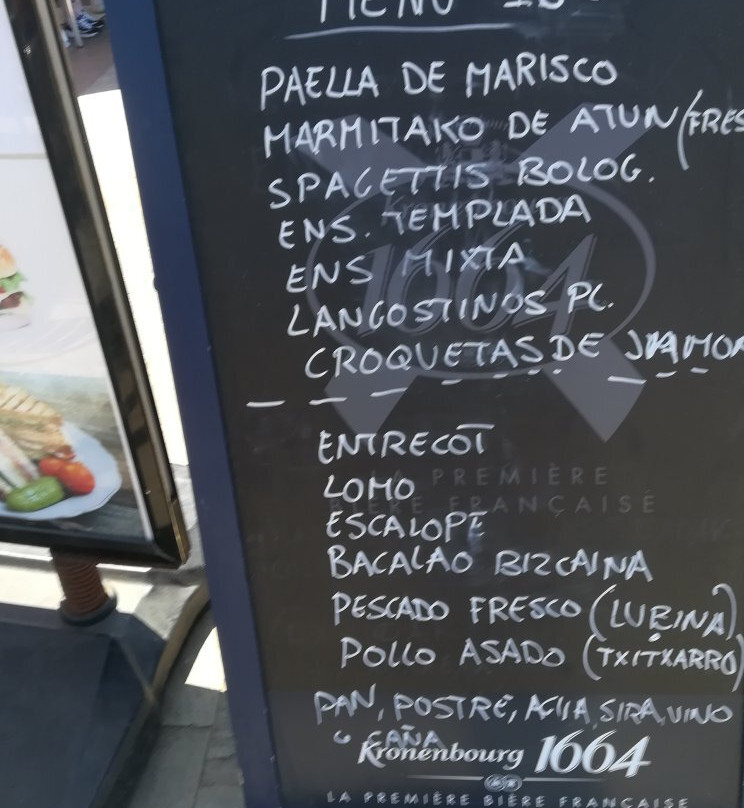 MENU
PAELLA DE MARISCO
MARMITAKO DE ATUN (FRES
SPAGETTIS BOLOG.
ENS. TEMPLADA
ENS MIXTA
LANGOSTINOS PC.
CROQUETAS DE JAMON
1664
ENTRECOT
LOMO
LA PREMIÈRE
BIÈRE FRANÇAISE
ESCALOPE
BACALAO BIZCAINA
PESCADO FRESCO (LUBINA)
POLLO ASADO (TXITXARRO)
PAN, POSTRE, AGUA, SIRA, VINO
o CAÑA
Kronenbourg 1664
LA PREMIÈRE BIÈRE FRANÇAISE